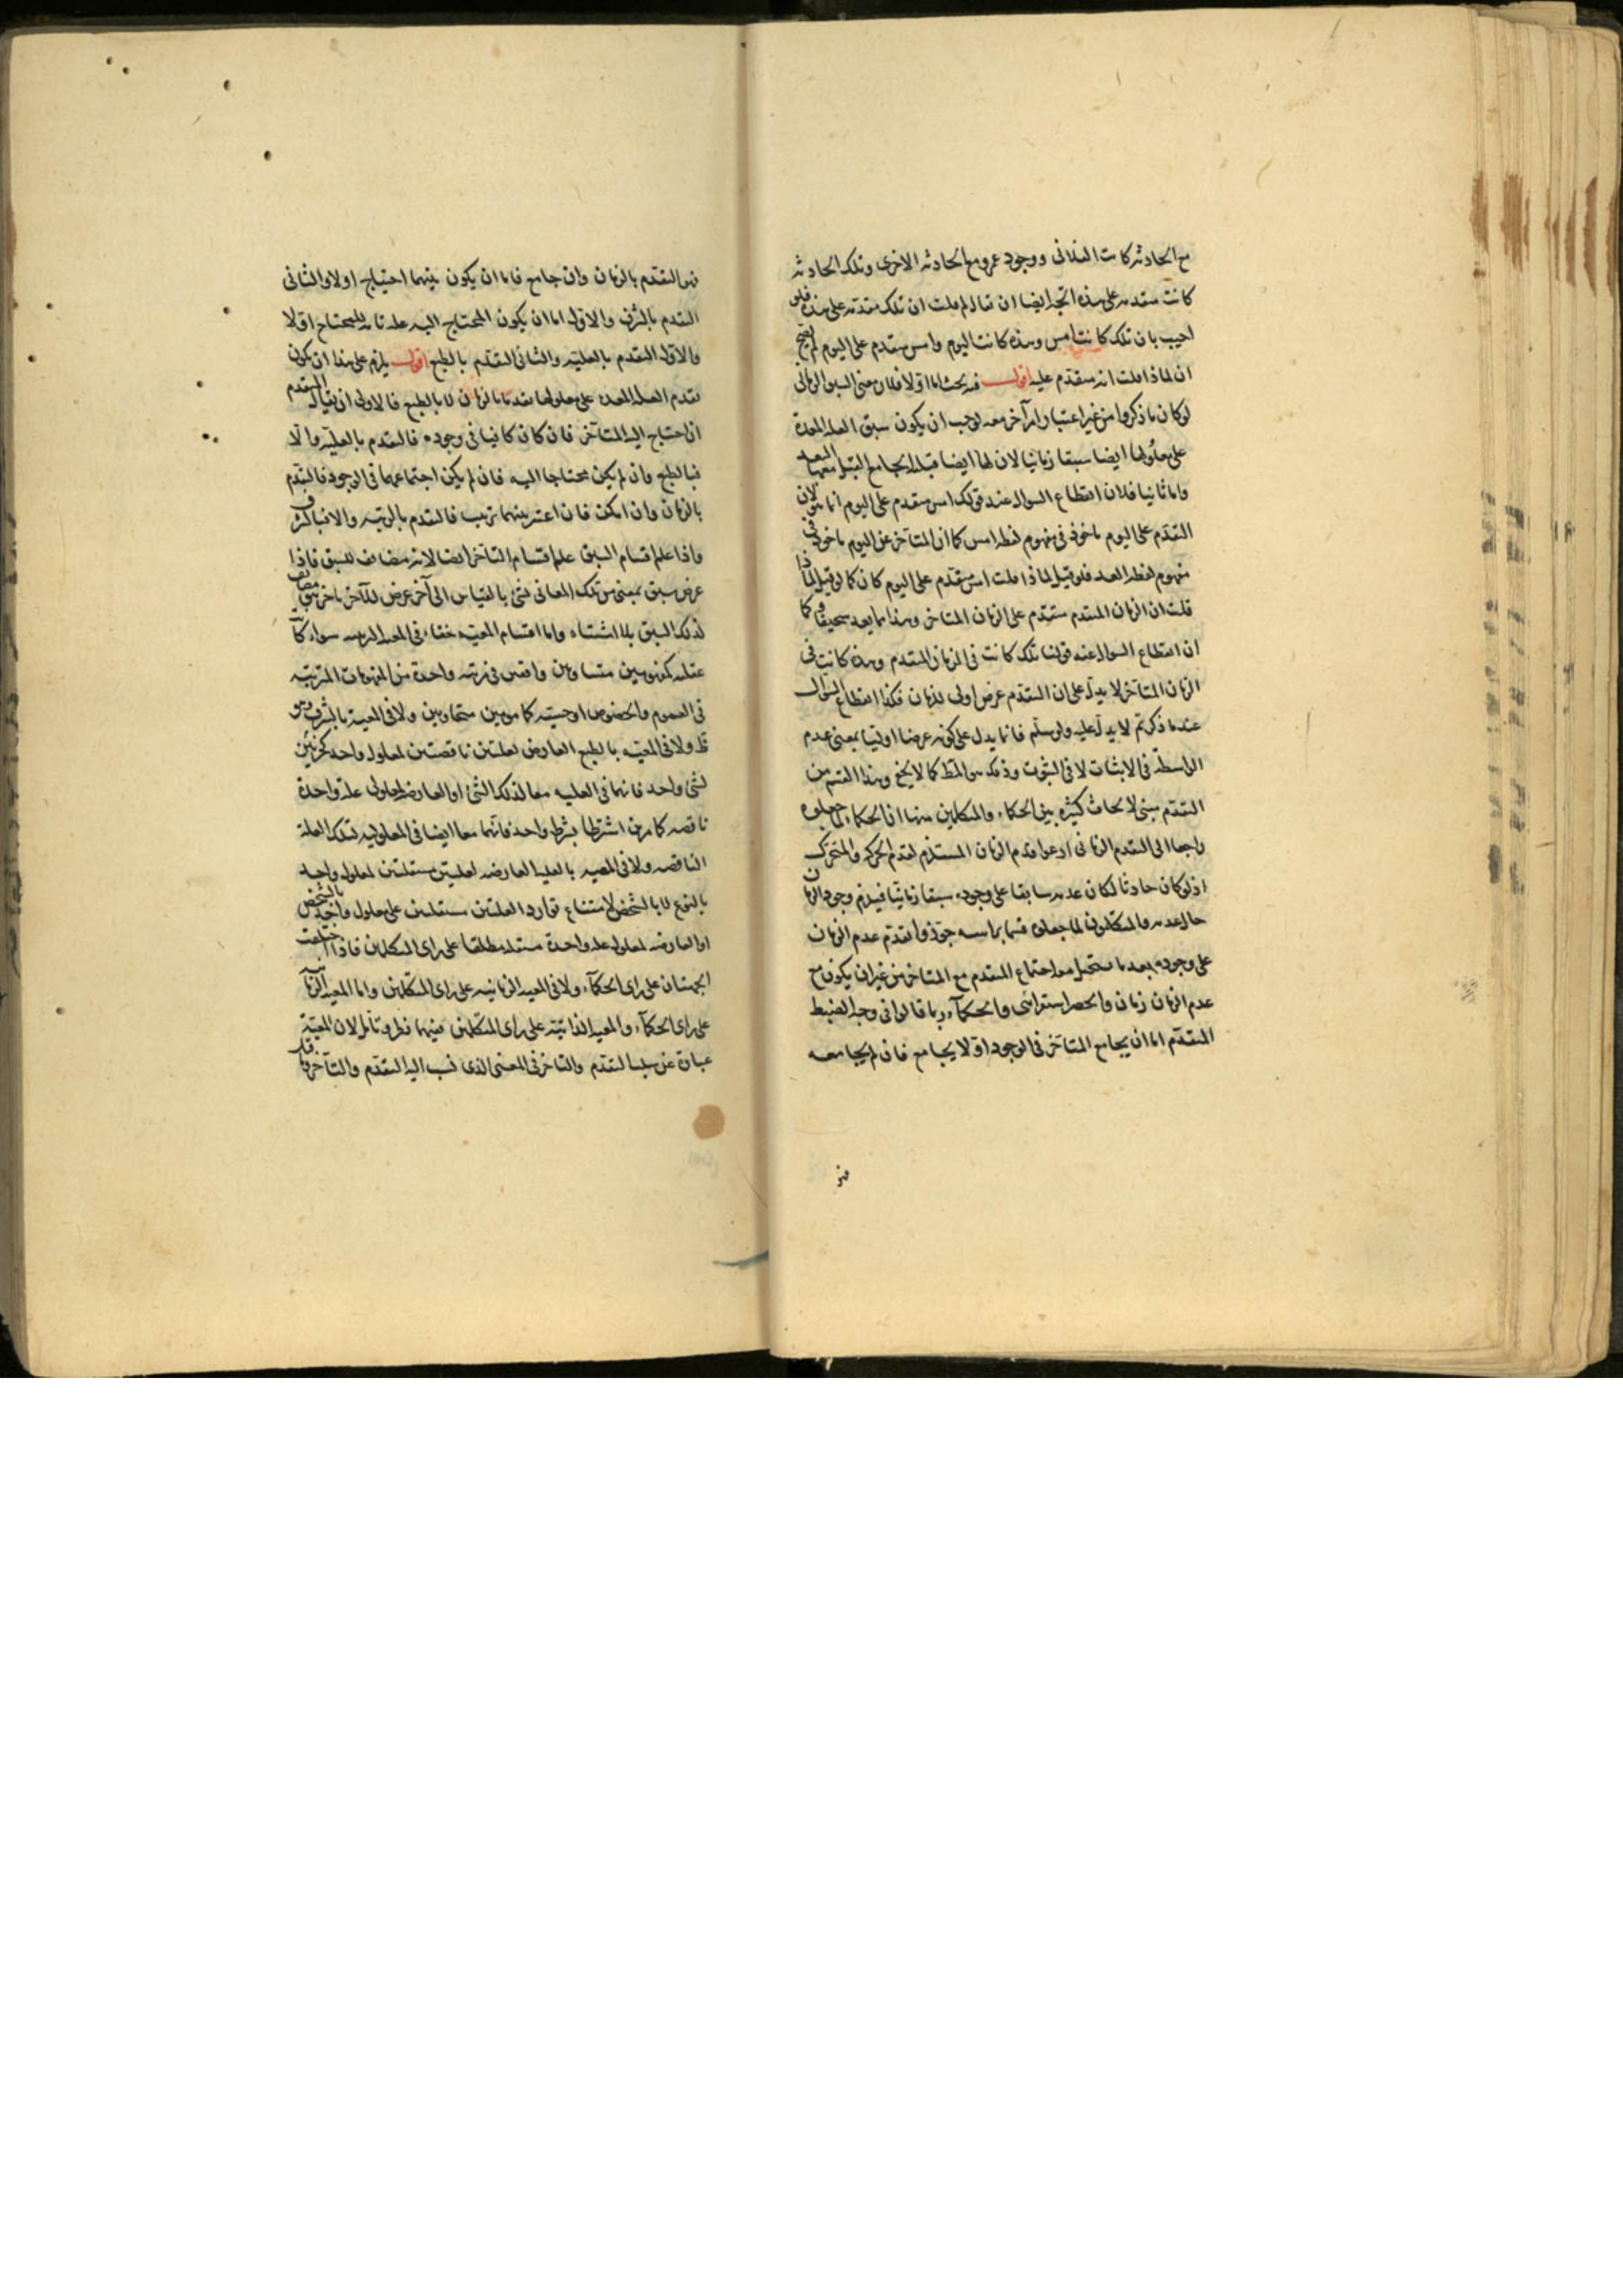 مع الحادثة كانت الفلانى ووجود عمرو مع الحادثة الاخرى وتلك الحادثة
كانت متقدمة على هذه اتجه ايضا ان يقال لم قلت ان تلك متقدمة على هذه فلو
اجيب بان تلك كانت امس وهذه كانت اليوم وامس متقدم على اليوم لم يصح
ان لماذا قلت انه متقدم عليه اقول فيه بحث اما اولا فلان معنى السبق الزمانى
لو كان ما ذكروا من غير اعتبار امر آخر معه لوجب ان يكون سبق العلة المعدة
على معلولها ايضا سبقا زمانيا لان لها ايضا قبلا لا يجامع القبل معها البعد
واما ثانيا فلان انقطاع السوال عند قولك امس متقدم على اليوم انما هو لان
التقدم على اليوم ماخوذ فى مفهوم لفظ امس كما ان المتاخر عن اليوم ماخوذ فى
مفهوم لفظ الغد فلو قيل لماذا قلت امس متقدم على اليوم كان كما لو قيل لماذا
قلت ان الزمان المتقدم متقدم على الزمان المتاخر وهذا مما يعد سخيفا وكما
ان انقطاع السوال عند قولنا تلك كانت فى الزمان المتقدم وهذه كانت فى
الزمان المتاخر لا يدل على ان التقدم عرض اولى للزمان فكذا انقطاع السوال
عند ما ذكرتم لا يدل عليه ولو سلم فانما يدل على كونه عرضا اوليا بمعنى عدم
الواسطة فى الاثبات لا فى الثبوت وذلك هو المط كما لا يخفى وهذا القسم من
التقدم مبنى لابحاث كثيرة بين الحكماء والمتكلمين منها ان الحكماء لما جعلوه
راجعا الى التقدم الزمانى ادعوا قدم الزمان المستلزم لقدم الحركة والمتحرك
اذ لو كان حادثا لكان عدمه سابقا على وجوده سبقا زمانيا فيلزم وجود الزمان
حال عدمه والمتكلمون لما جعلوه قسما براسه جوزوا تقدم عدم الزمان
على وجوده بعد ما يستحيل معه اجتماع المتقدم مع المتاخر من غير ان يكون مع
عدم الزمان زمان والحصر استقرائى والحكماء ربما قالوا فى وجه الضبط
المتقدم اما ان يجامع المتاخر فى الوجود او لا يجامع فان لم يجامعه
فهو
فهو التقدم بالزمان وان جامع فاما ان يكون بينهما احتياج اولا والثانى
التقدم بالشرف والاول اما ان يكون المحتاج اليه علة تامة للمحتاج اولا
والاول التقدم بالعلية والثانى التقدم بالطبع اقول يلزم على هذا ان يكون
تقدم العلة المعدة على معلولها تقدما بالزمان لا بالطبع فالاولى ان يقال المتقدم
ان احتاج اليه المتاخر فان كان كافيا فى وجوده فالتقدم بالعلية والا
فبالطبع وان لم يكن محتاجا اليه فان لم يكن اجتماعهما فى الوجود فالتقدم
بالزمان وان امكن فان اعتبر بينهما ترتيب فالتقدم بالرتبة والا فبالشرف
واذا علم اقسام السبق علم اقسام التاخر ايضا لانه مضايف للسبق فاذا
عرض سبق بمعنى من تلك المعانى لشئ بالقياس الى آخر عرض للآخر تاخر مضايف
لذلك السبق بلا اشتباه واما اقسام المعية خفاء فى المعية الرتبية سواء كانت
عقلية كمفهومين متساويين واقعين فى مرتبة واحدة من المفهومات المترتبة
فى العموم والخصوص او حسية كمامومين متحاذيين ولا فى المعية بالشرف وهو
ظ ولا فى المعية بالطبع العارض لعلتين ناقصتين لمعلول واحد كجزئين
لشئ واحد فانهما فى العلية معا لذلك الشئ او العارضة لمعلولى علة واحدة
ناقصة كامرين اشترطا بشرط واحد فانهما معا ايضا فى المعلولية لتلك العلة
الناقصة ولا فى المعية بالعلية العارضة لعلتين مستقلتين لمعلول واحد
بالنوع لا بالشخص لامتناع توارد العلتين مستقلتين على معلول واحد بالشخص
او العارضة لمعلولى علة واحدة مستقلة مطلقا على راى المتكلمين فاذا اختلفت
الجهتان على راى الحكماء ولا فى المعية الزمانية على راى المتكلمين واما المعية الزمانية
على راى الحكماء والمعية الذاتية على راى المتكلمين ففيهما نظر وتامل لان المعية
عبارة عن سلب التقدم والتاخر فى المعنى الذى نسب اليه التقدم والتاخر